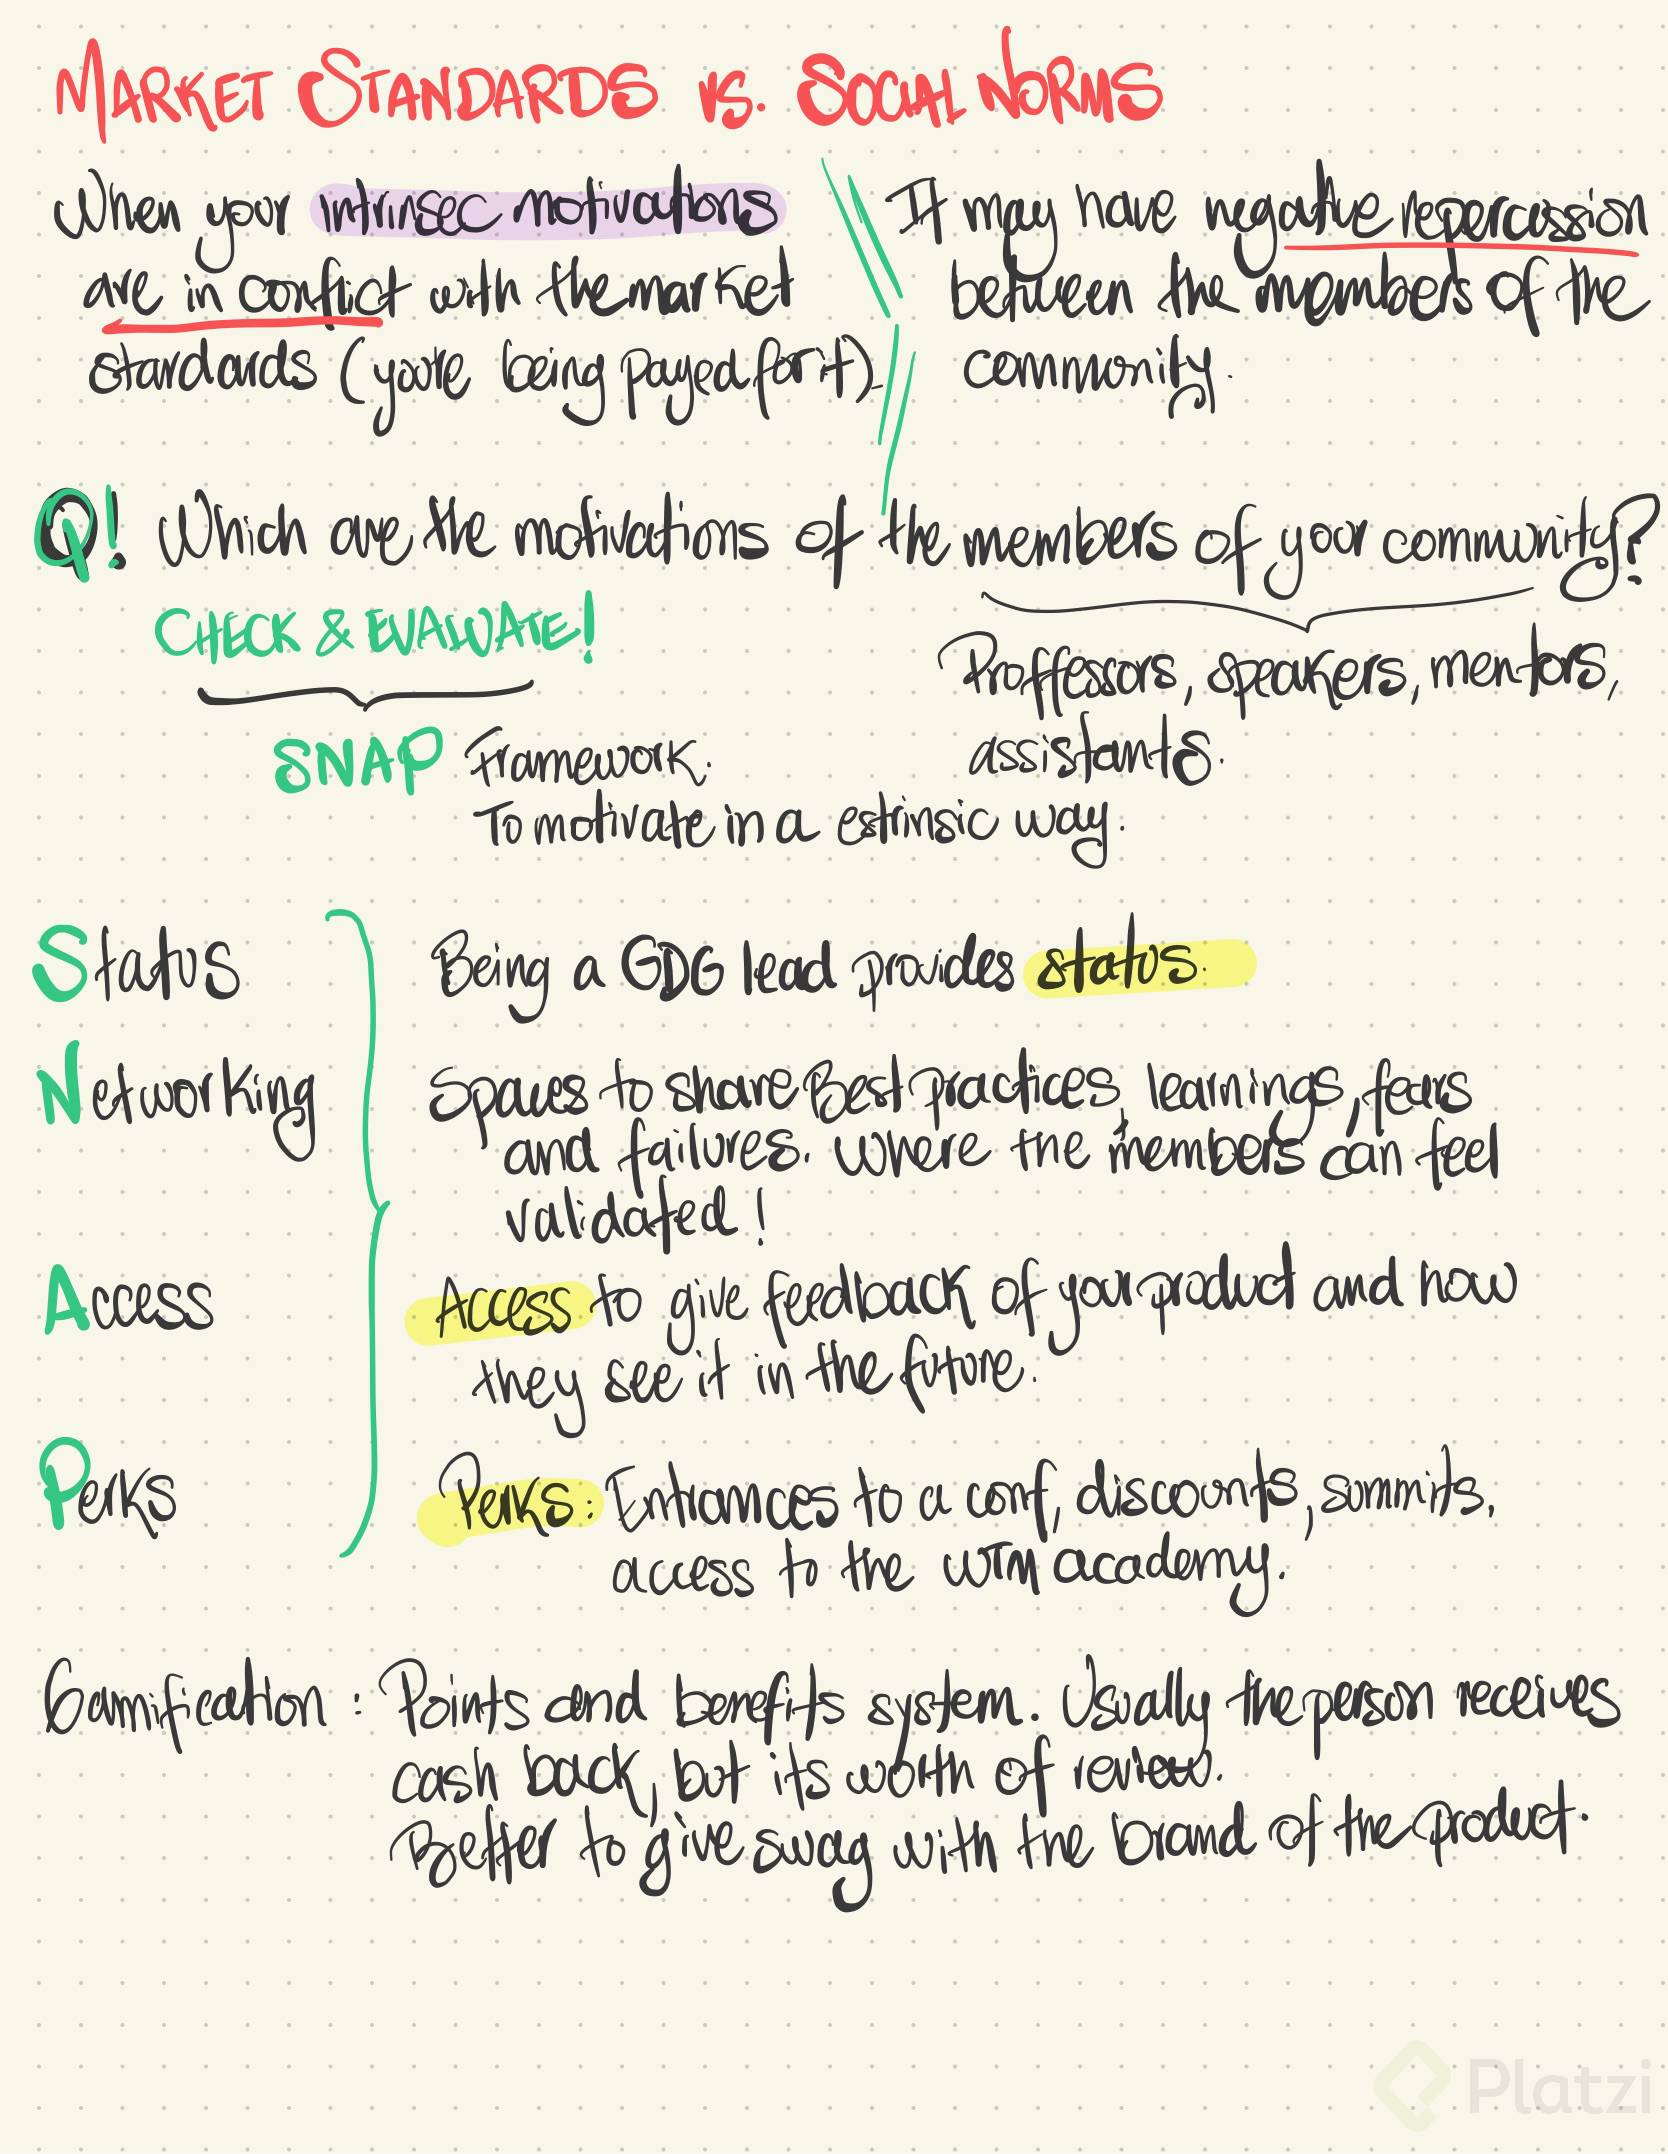 MARKET STANDARDS vs. SOCIAL NORMS
When your intrinsec motivations
are in conflict with the market
standards (you're being payed for it).
It may have negative repercussion
between the members of the
community.
Q! Which are the motivations of the members of your community?
CHECK & EVALUATE!
Proffessors, speakers, mentors,
assistants.
SNAP Framework.
To motivate in a estrinsic way.
Status
Being a GDG lead provides status.
Networking
Spaces to share Best practices, learnings, fears
and failures. Where the members can feel
validated!
Access
Access to give feedback of your product and how
they see it in the future.
Perks
Perks: Entrances to a conf, discounts, summits,
access to the WTM academy.
Gamification: Points and benefits system. Usually the person receives
cash back, but its worth of review.
Better to give swag with the brand of the product.
Platzi